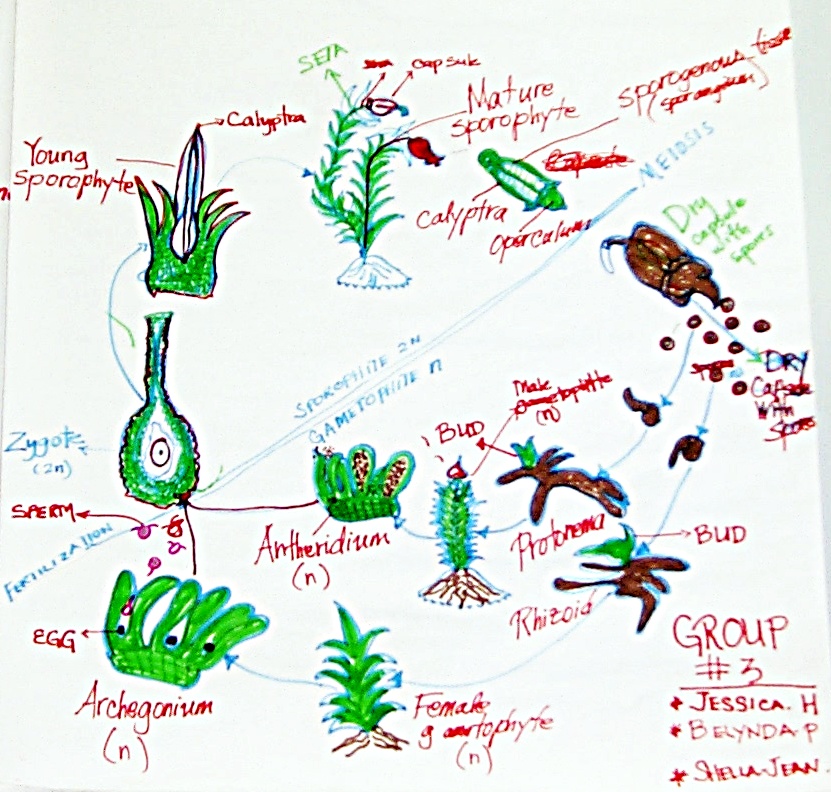 SETA
capsule
Calyptra
Mature
sporophyte
sporogenous tissue
(sporangium)
Young
sporophyte
MEIOSIS
Calyptra
Opercalum
Dry
capsule
with
spores
SPOROPHITE 2N
GAMETOPHITE n
DRY
Capsule
With
Spores
Male
Gametophitte
(n)
BUD
Zygote
(2n)
SPERM
FERTILIZATION
Antheridium
(n)
Protonema
BUD
Rhizoid
EGG
Archegonium
(n)
Female
gamtophyte
(n)
GROUP
#3
* JESSICA. H
* BELYNDA-P
* SHELLA-JEAN.